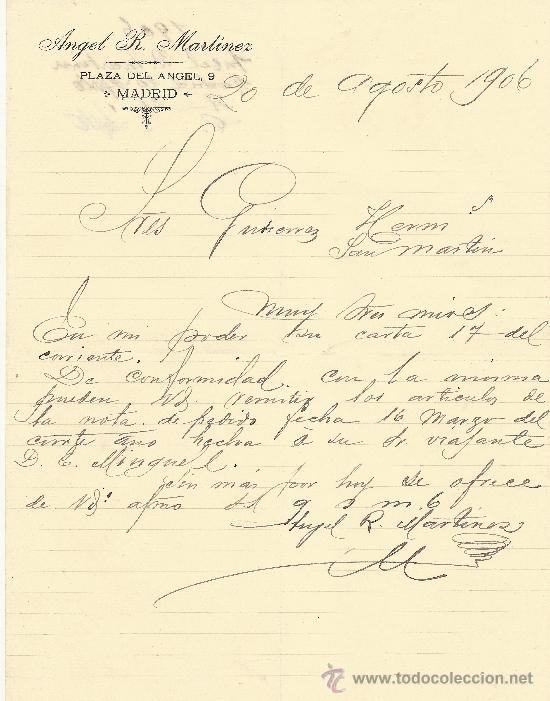 Angel R. Martinez
PLAZA DEL ANGEL, 9
MADRID
20 de Agosto 1906
Sres Gutierrez Hermos
San Martin
Muy Sres mios:
En mi poder su carta 17 del
corriente.
De conformidad con la misma
pueden Vds remitir los articulos de
la nota de pedido fecha 16 Marzo del
corrte año hecha a su Sr viajante
D. E. Minguel.
Sin más por hoy se ofrece
de Vds afmo SS q s m b
Angel R. Martinez
www.todocoleccion.net